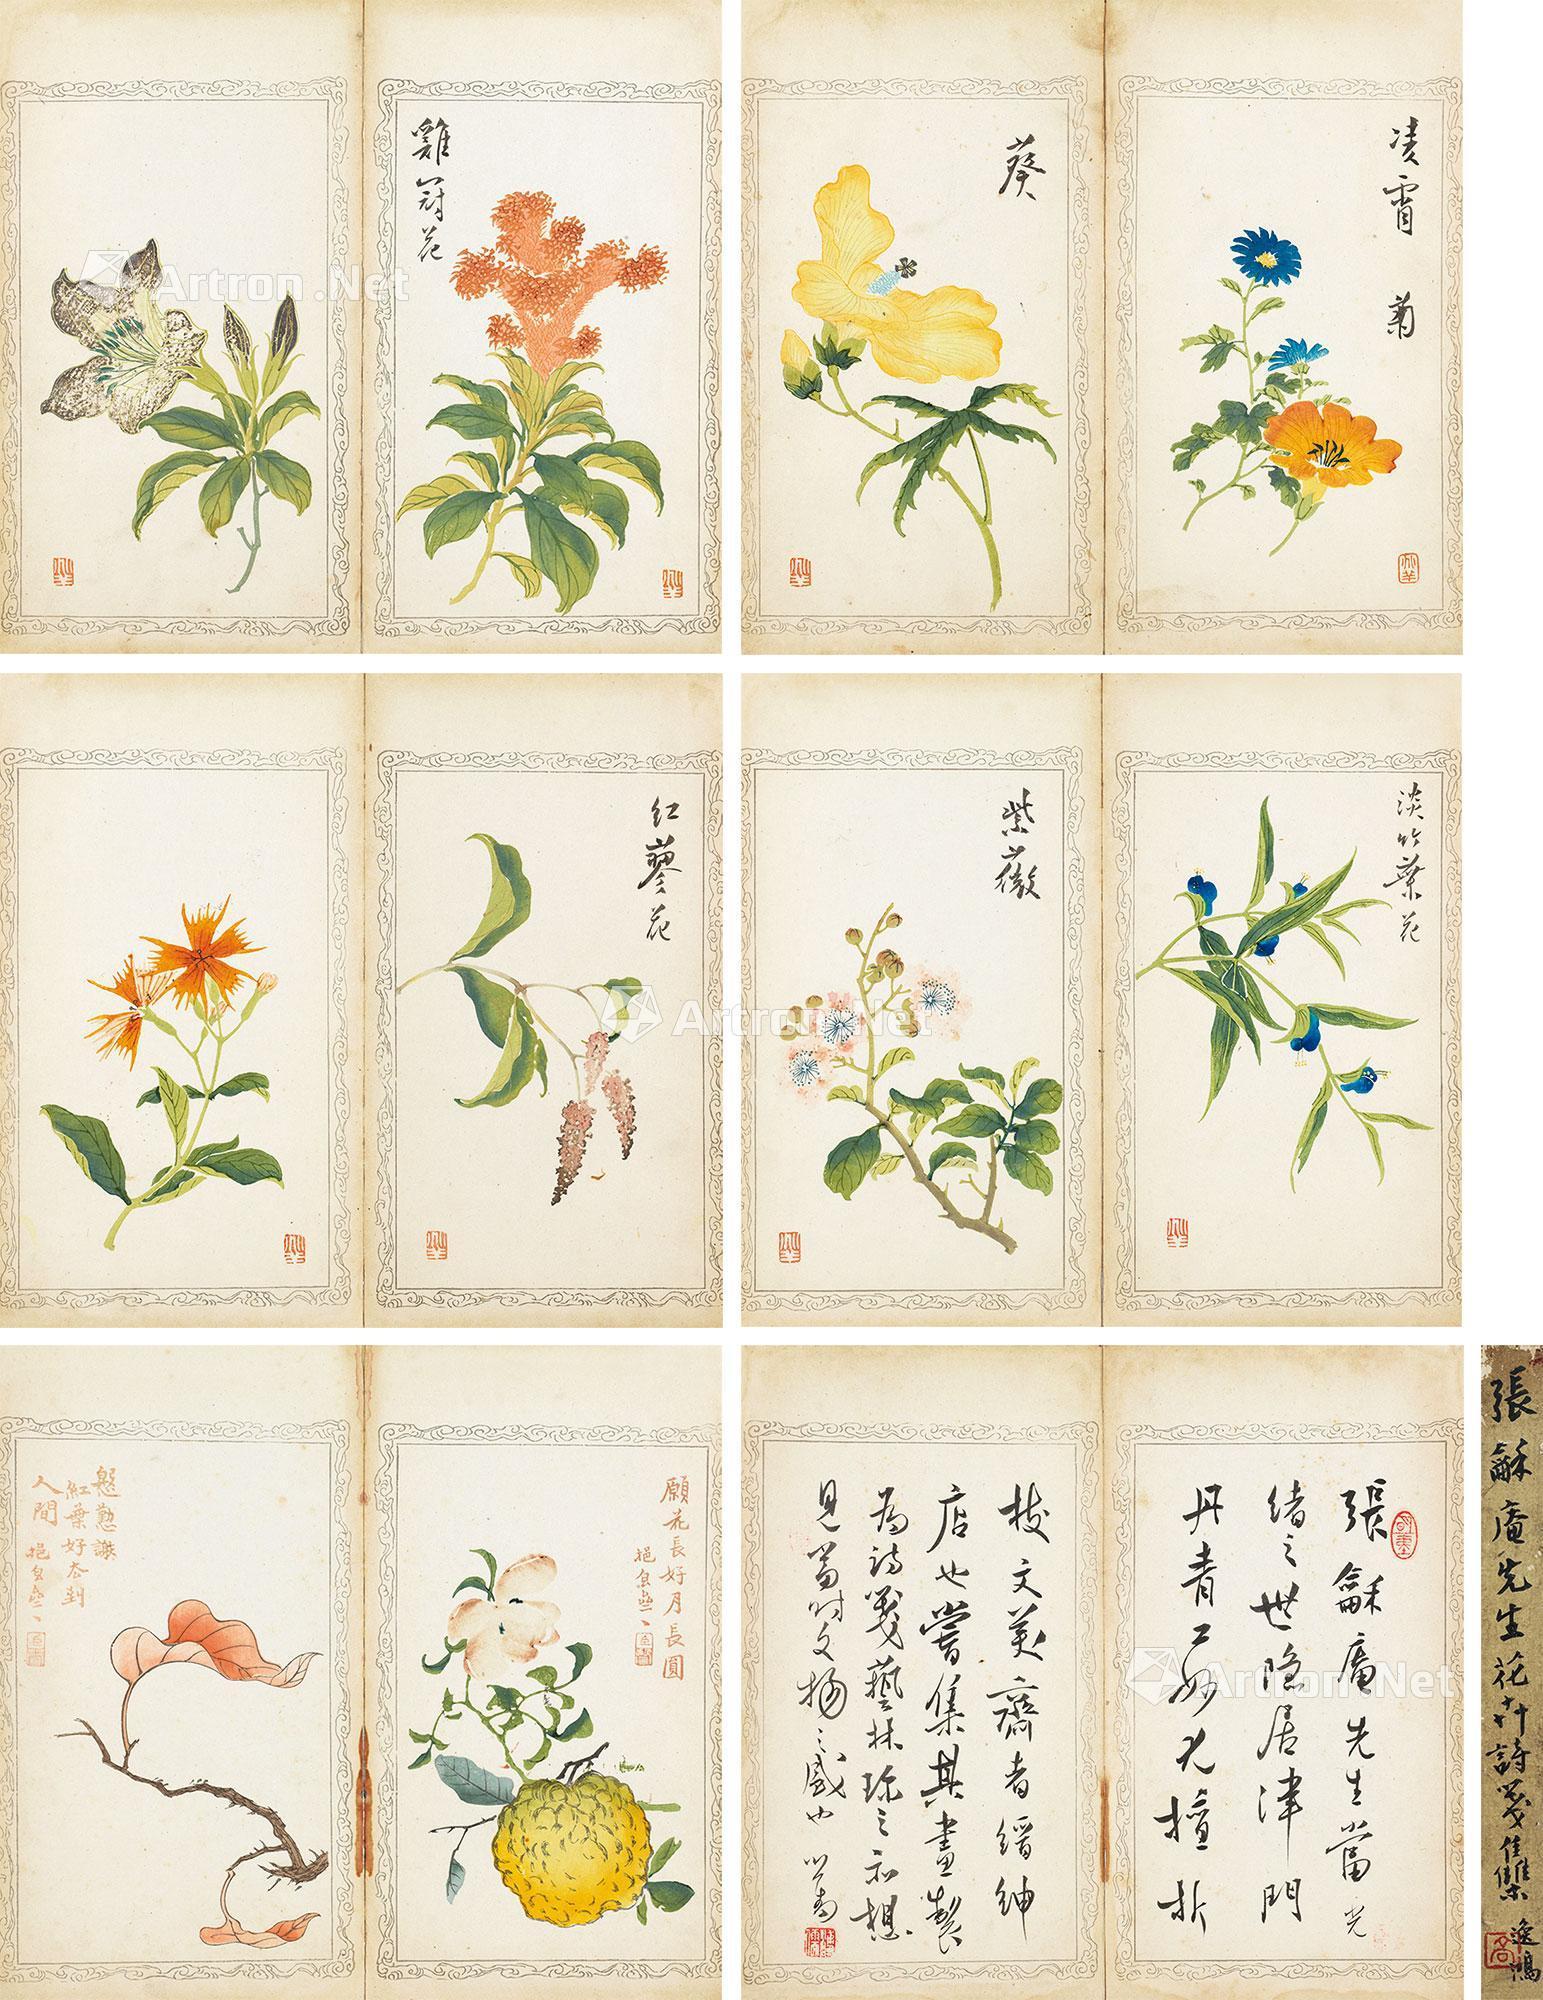 雞冠花
葵
凌霄 菊
紅蓼花
紫薇
淡竹葉花
慇懃謝
紅葉好本到
人間 挹自
願花長好月長圓
張龢庵先生當光
緒之世隐居津門
丹青工妙尤擅折
枝文美齋者縉紳
店也嘗集其畫製
為詩箋藝林珍之和想
見當时文物之盛也 心畬
張龢庵先生花卉詩箋集 逸鴻
Artron.Net
Artron.Net
Artron.Net